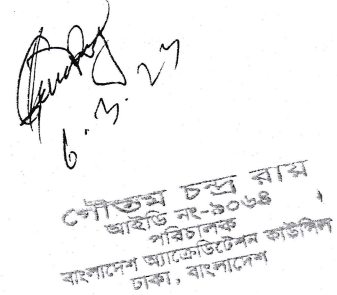 ৬.3.23
গৌতম চন্দ্র রায়
আইডি নং-৯০৬৪
পরিচালক
বাংলাদেশ অ্যাক্রেডিটেশন কাউন্সিল
ঢাকা, বাংলাদেশ